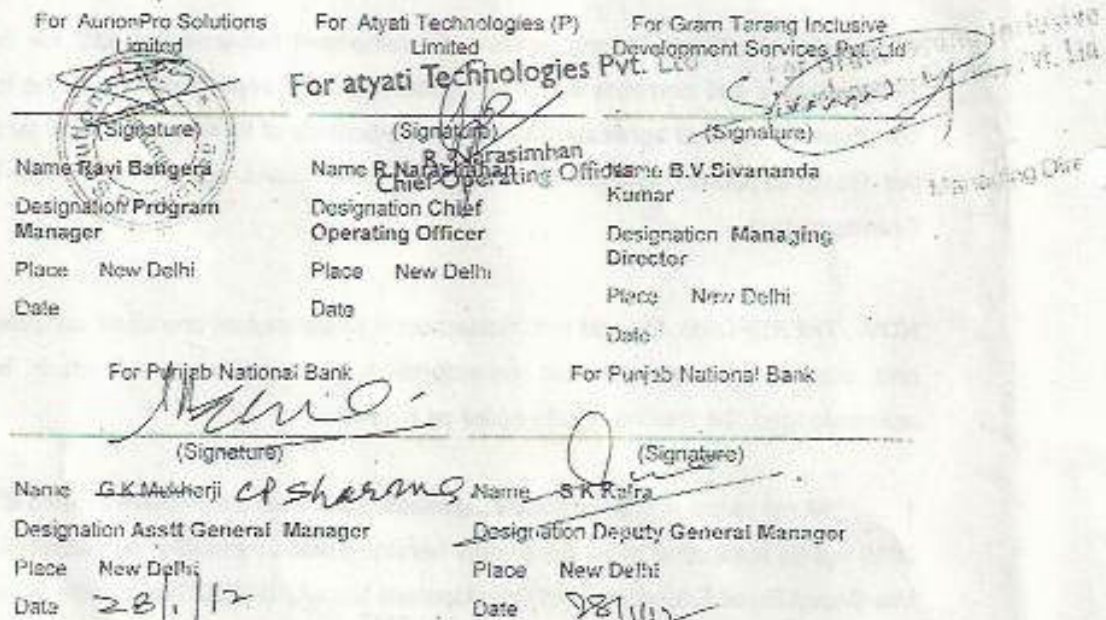 For AurionPro Solutions Limited
(Signature)
Name Ravi Bangera
Designation Program Manager
Place New Delhi
Date
For Atyati Technologies (P) Limited
For atyati Technologies Pvt. Ltd
(Signature)
R. Narasimhan
Chief Operating Officer
Name R.Narasimhan
Designation Chief Operating Officer
Place New Delhi
Date
For Gram Tarang Inclusive Development Services Pvt. Ltd
(Signature)
Name B.V.Sivananda Kumar
Designation Managing Director
Place New Delhi
Date
Inclusive
Pvt. Ltd
For Punjab National Bank
(Signature)
Name G.K.Mukherji CP Sharma
Designation Asstt General Manager
Place New Delhi
Date 28/1/12
For Punjab National Bank
(Signature)
Name S K Kalra
Designation Deputy General Manager
Place New Delhi
Date 28/1/12